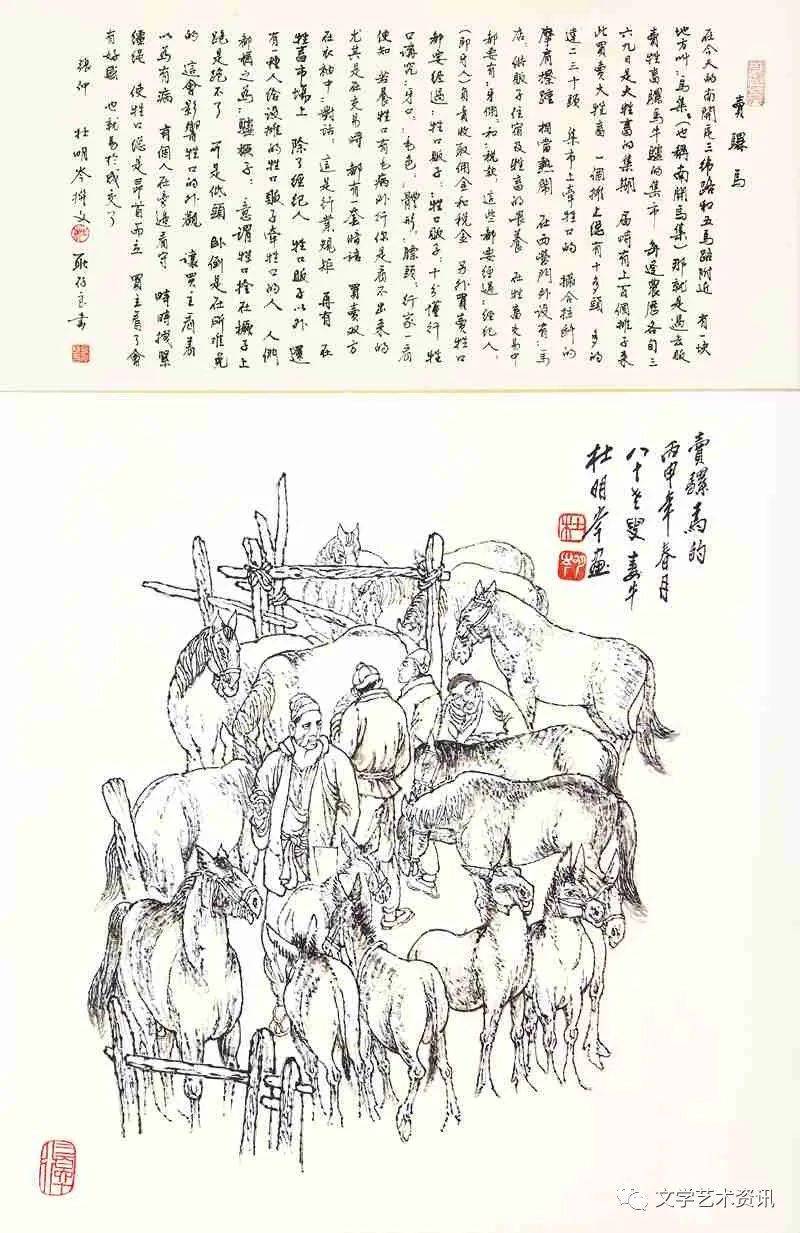 賣騾馬
在今天的南開區三緯路和五馬路附近 有一块
地方叫：馬集。（也稱南開馬集）那就是過去販
賣牲畜騾馬牛驢的集市 每逢農曆各旬三
六九日是大牲畜的集期 屆時有上百個攤子来
此買賣大牲畜 一個攤上總有十多頭 多的
達二三十頭 集市上牵牲口的 撮合拉縴的
摩肩擦踵 相當熱鬧 在西營門外設有：馬
店：供販子住宿及牲畜的畏養 在牲畜交易中
都要有：牙佣：和：税款 這些都要經過：经纪人：
（即牙人）負責收取佣金和税金 另外買賣牲口
都要經過：牲口販子：：牲口販子：十分懂行 牲
口講究：牙口：毛色：體形：膘頭：行家一看
便知 若養牲口有毛病外行你是看不出来的
尤其是在交易時 都有一套暗语 買賣双方
在衣袖中：對話：這是行業規矩 再有 在
牲畜市場上 除了經纪人 牲口販子以外 還
有一種人給設攤的牲口販子牵牲口的人 人們
都稱之為：驢橛子：意謂牲口拴在橛子上
跑是跑不了 可是低頭 卧倒是在所难免
的 這會影響牲口的外觀 讓買主看着
以為有病 有個人在旁邊看守 時時拽緊
缰绳 使牲口總是昂首而立 買主看了會
有好感 也就易於成交了
張仲 杜明岑撰文
書
賣騾馬的
丙申年春月
八十老叟 喜牛
杜明岑畫
文学艺术资讯